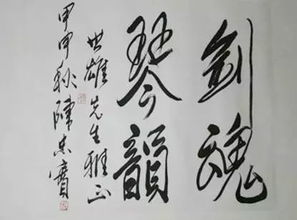 剑魂
琴韻
世雄先生雅正
甲申秋陈忠實